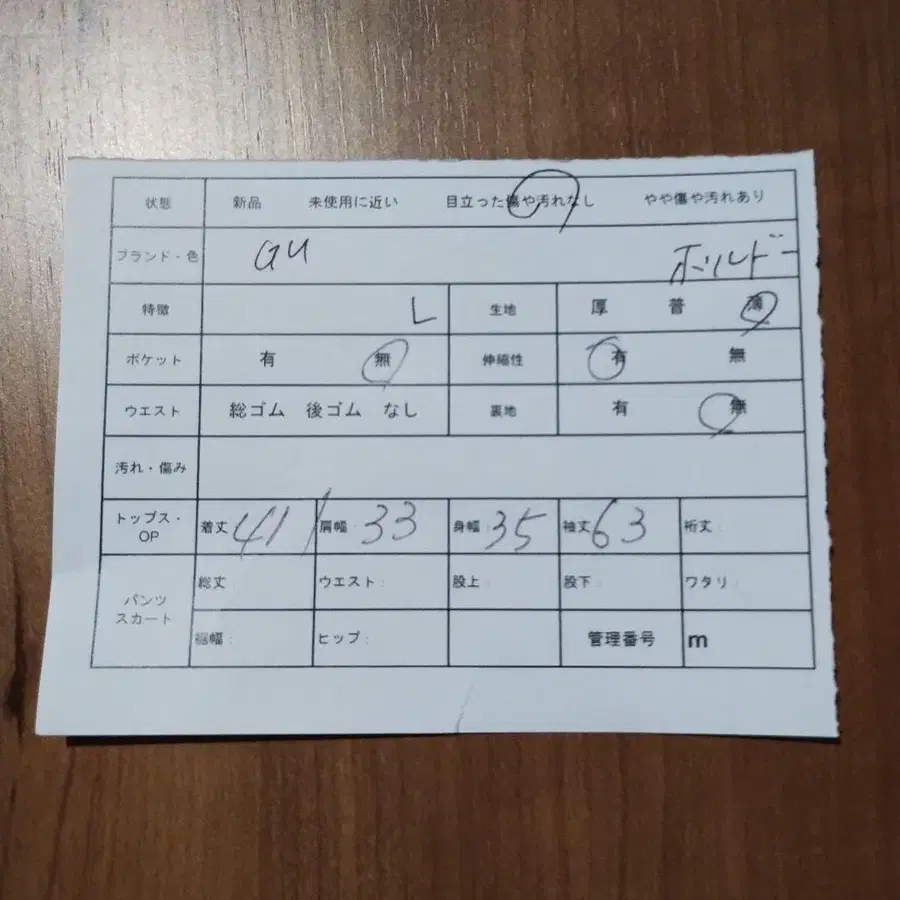 状態 新品 未使用に近い 目立った傷や汚れなし やや傷や汚れあり
ブランド・色 GU ボルドー
特徴 L 生地 厚 普 薄
ポケット 有 無 伸縮性 有 無
ウエスト 総ゴム 後ゴム なし 裏地 有 無
汚れ・傷み
トップス・OP 着丈 41 肩幅: 33 身幅: 35 袖丈 63 裄丈:
パンツ スカート 総丈: ウエスト: 股上: 股下: ワタリ:
裾幅: ヒップ: 管理番号 m